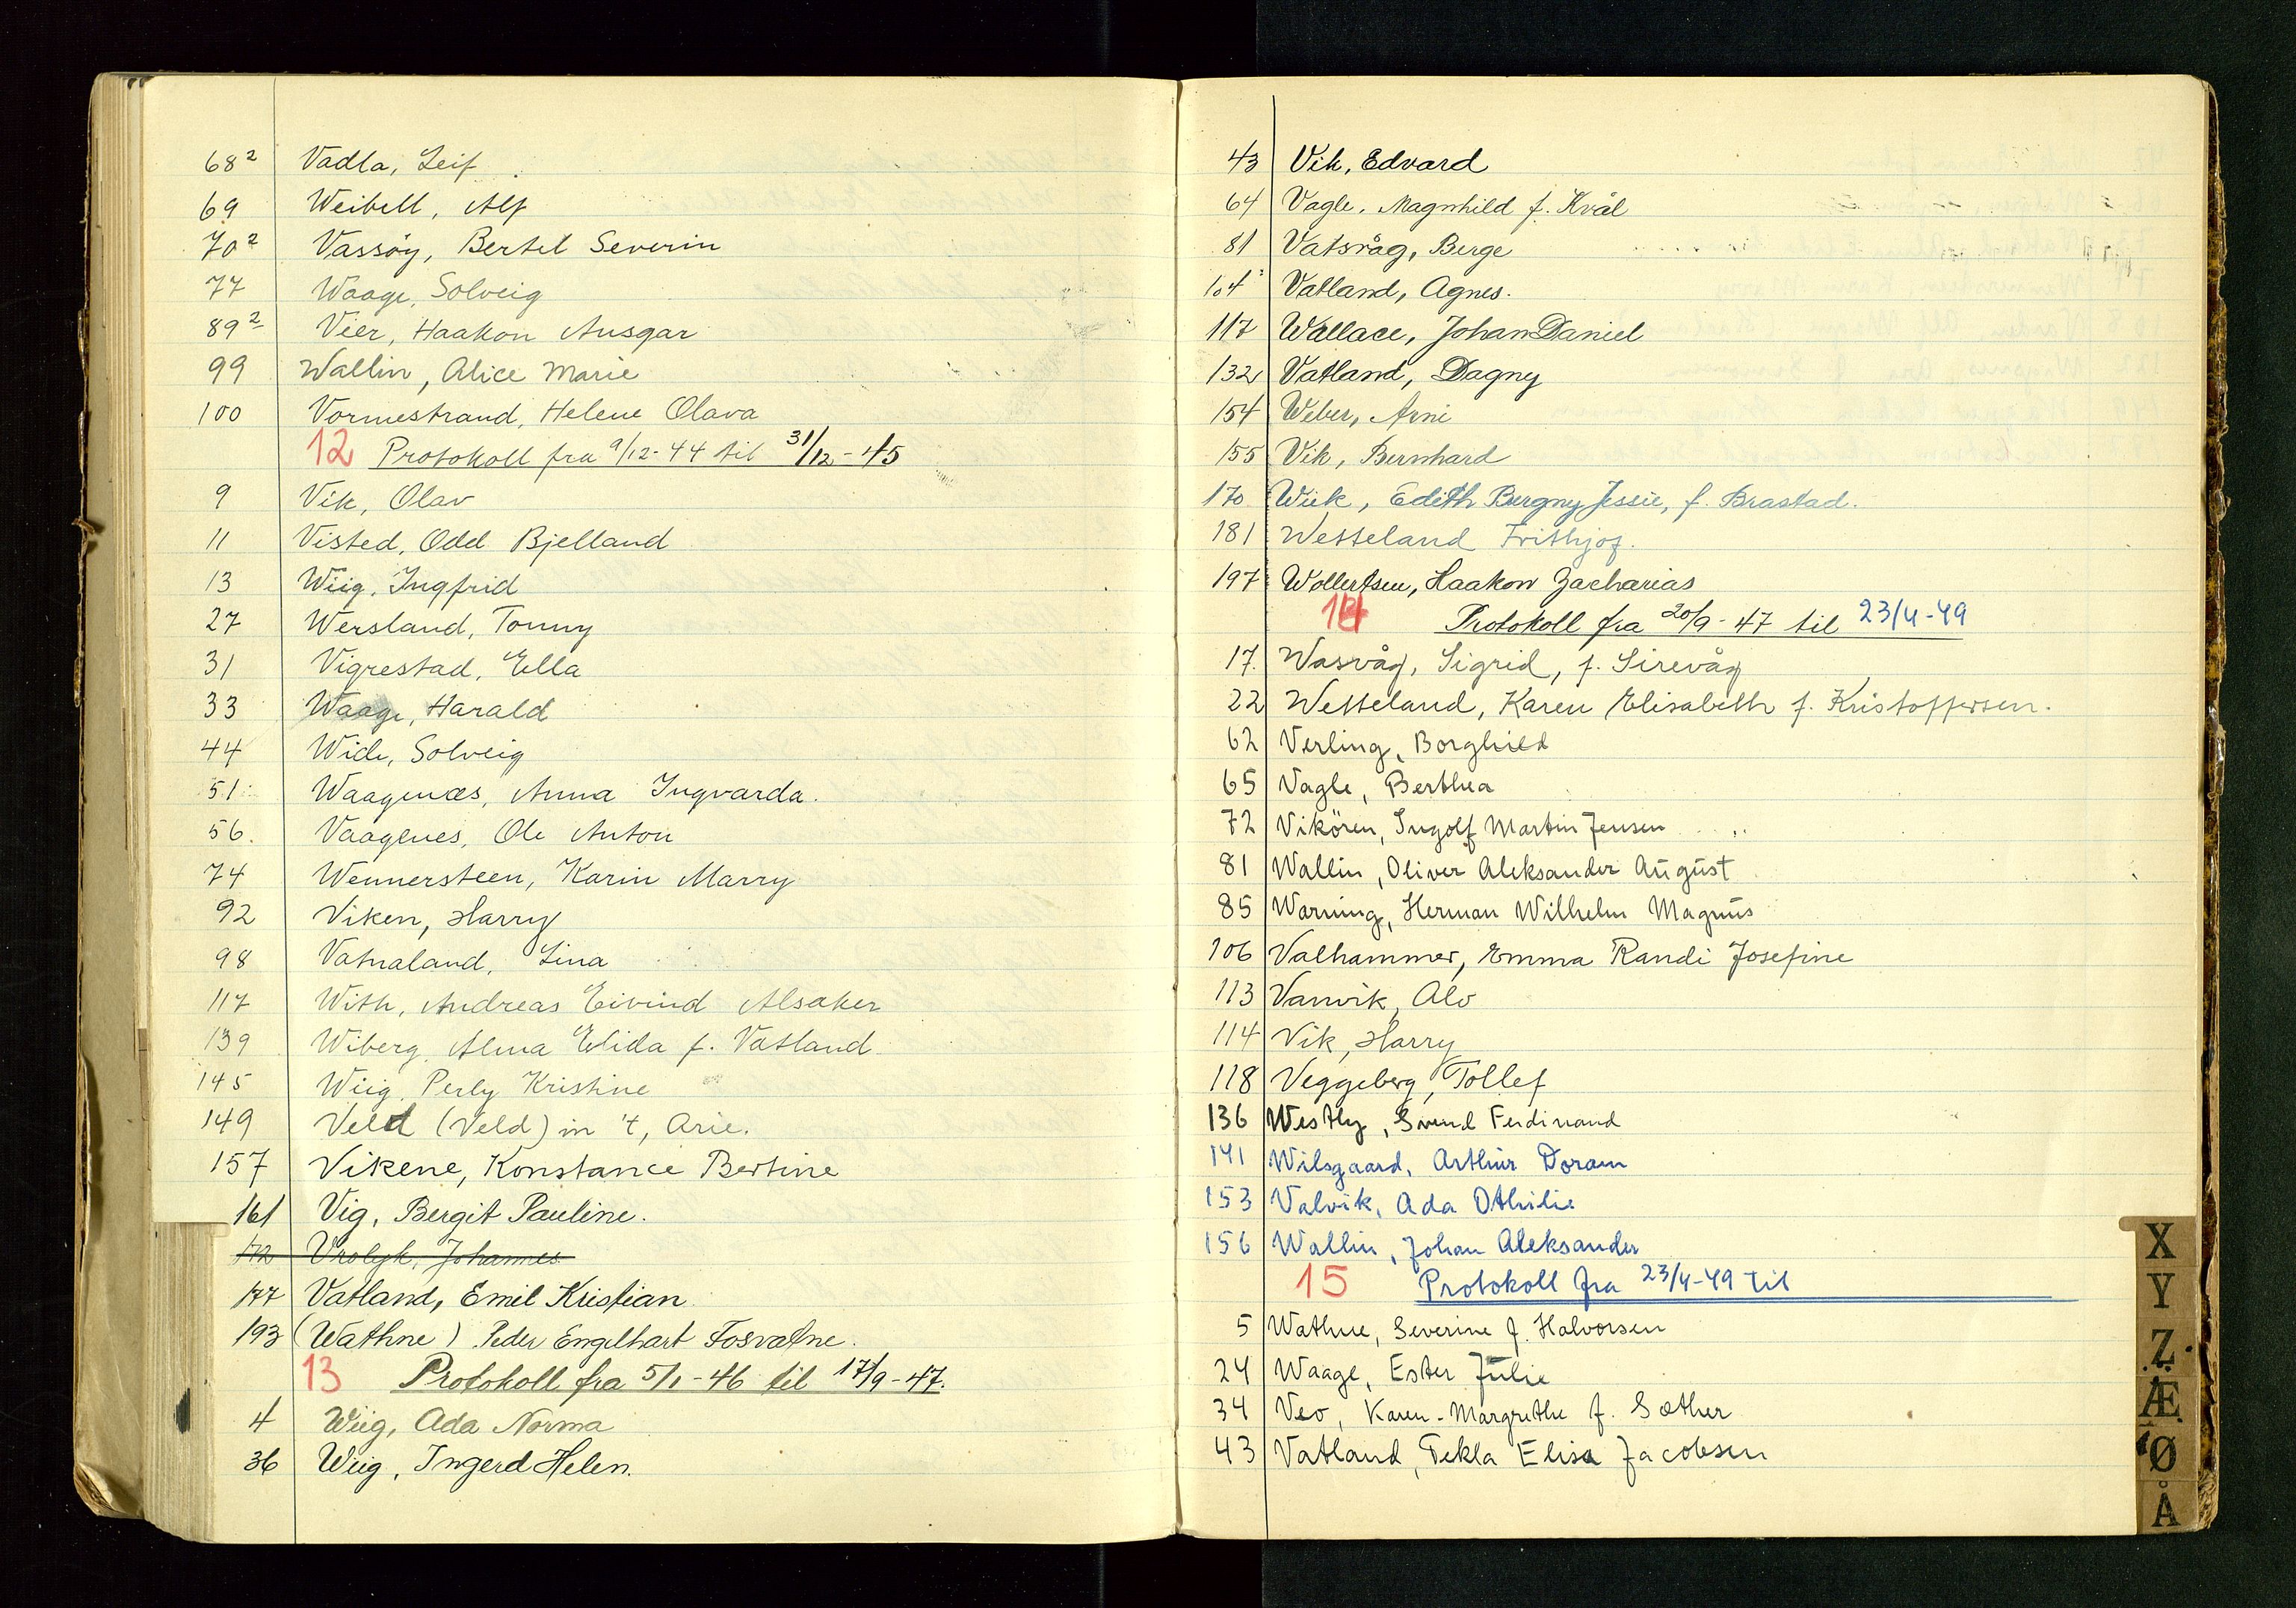 68² Vadla, Leif
69 Weibell, Alf
70² Vassöy, Bertel Severin
77 Waage, Solveig
89² Vier, Haakon Ansgar
99 Wallin, Alice Marie
100 Vormestrand, Helene Olava
12 Protokoll fra 9/12-44 til 31/12-45
9 Vik, Olav
11 Visted, Odd Bjelland
13 Wiig, Ingfrid
27 Wersland, Tonny
31 Vigrestad, Ella
33 Waage, Harald
44 Wide, Solveig
51 Waagenæs, Anna Ingvarda.
56. Vaagenes, Ole Anton
74 Wennersteen, Karin Marry
92 Viken, Harry
98 Vatnaland, Lina
117 With, Andreas Eivind Alsaker
139 Wiberg, Alma Elida f. Vatland
145 Wiig, Perly Kristine
149 Veld (Veld) in 't, Arie.
157 Vikene, Konstance Bertine
161 Vig, Bergit Pauline.
172 Vrolyk, Johannes
177 Vatland, Emil Kristian
193 (Wathne) Peder Engelhart Fosvatne.
13 Protokoll fra 5/1-46 til 17/9-47.
4 Wiig, Ada Norma
36 Wiig, Ingerd Helen.
43 Vik, Edvard
64 Vagle, Magnhild f. Kvål
81 Vatsvåg, Berge
104² Vatland, Agnes.
117 Wallace, Johan Daniel
132 Vatland, Dagny
154 Weber, Arni
155 Vik, Bernhard
170 Wiik, Edith Bergny Jessie, f. Brastad.
181 Wetteland Frithjof.
197 Wollertsen, Haakon Zacharias
14 Protokoll fra 20/9-47 til 23/4-49
17. Wasvåg, Sigrid, f. Sirevåg
22 Wetteland, Karen Elisabeth f. Kristoffersen.
62 Verling, Borghild
65 Vagle, Berthea
72 Vikören, Ingolf Martin Jensen
81 Wallin, Oliver Aleksander August
85 Warning, Herman Wilhelm Magnus
106 Valhammer, Emma Randi Josefine
113 Vanvik, Alv
114 Vik, Harry
118 Veggeberg, Tollef
136 Westly, Svend Ferdinand
141 Wilsgaard, Arthur Doram
153 Valvik, Ada Othilie
156 Wallin, Johan Aleksander
15 Protokoll fra 23/4-49 til
5 Wathne, Severine f. Halvorsen
24 Waage, Ester Julie
34 Veo, Karen-Margrethe f. Sæther
43 Vatland, Tekla Elisa Jacobsen
X
Y
Z
Æ
Ø
Å